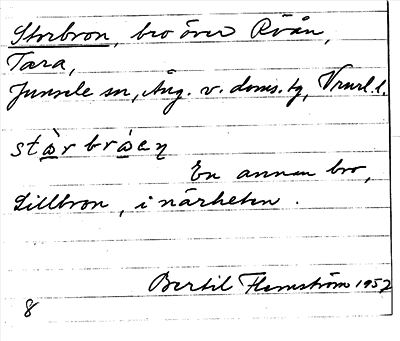 Storbron, bro över Röån,
Tara,
Junsele sn, Ång. v. doms. tg, Vrnrl. l.
stɷ̀r brɷaṇ
En annan bro,
Lillbron, i närheten.
Bertil Flemström 1952
8